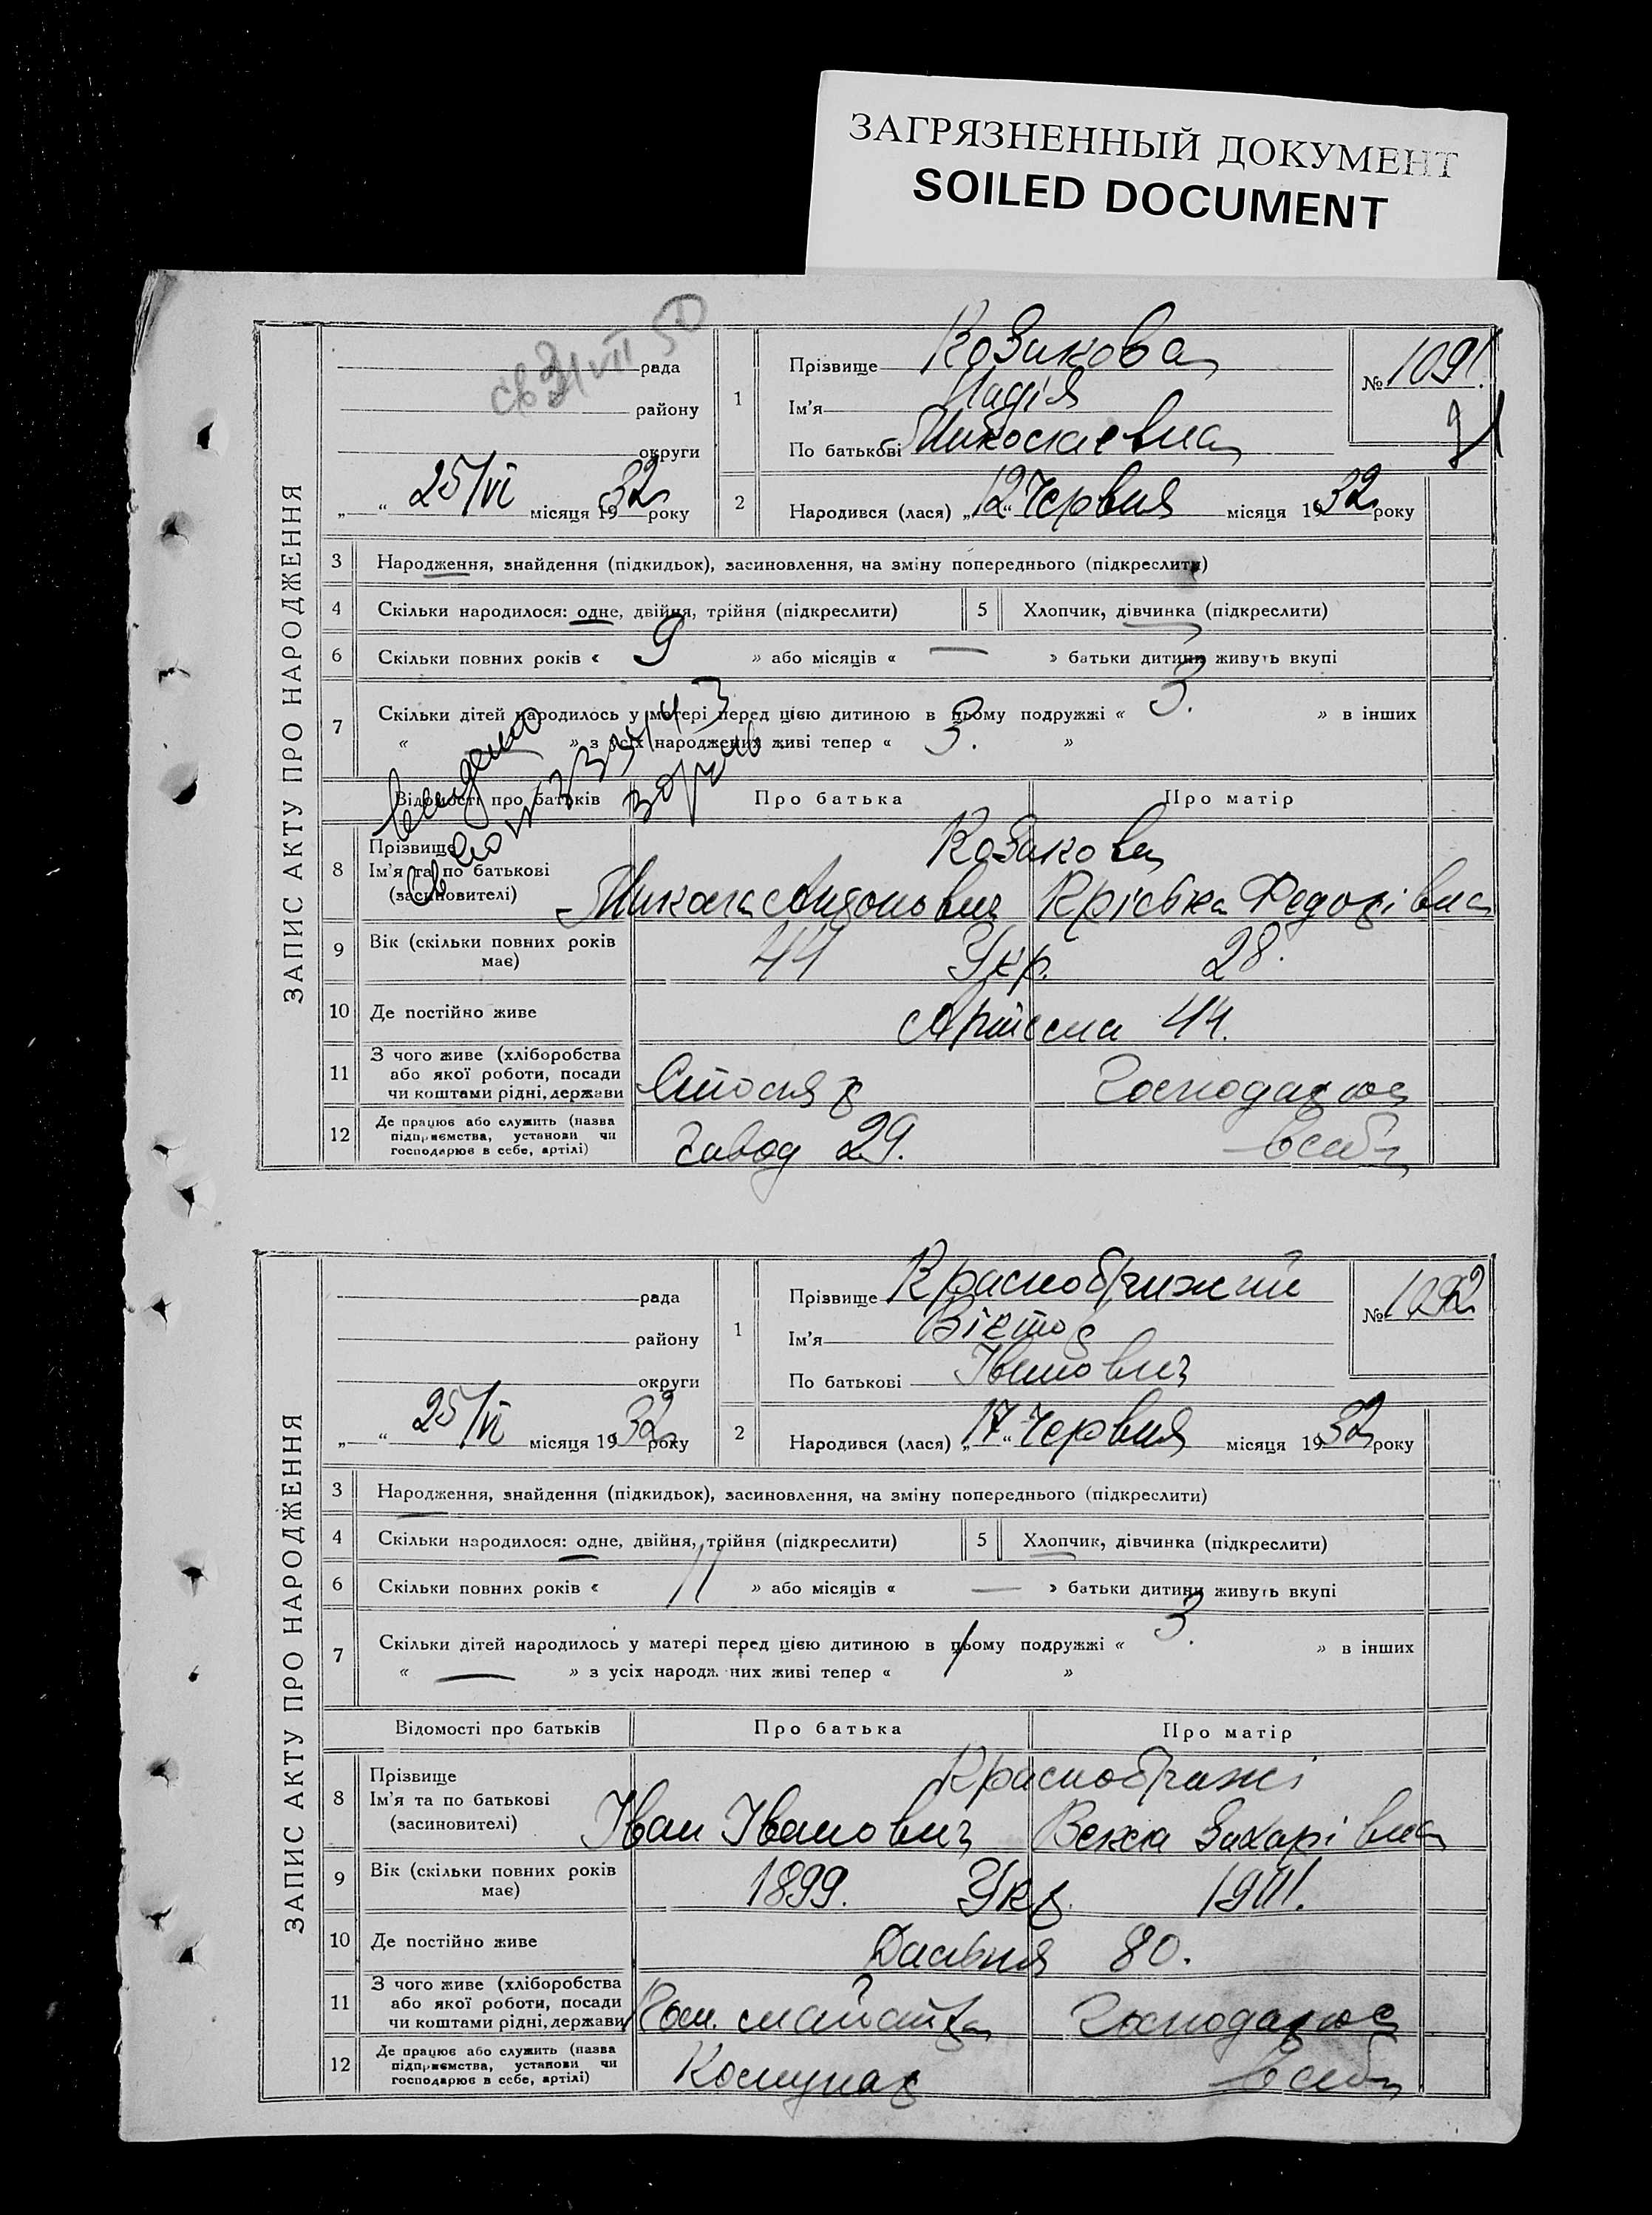 ЗАГРЯЗНЕННЫЙ ДОКУМЕНТ
SOILED DOCUMENT
ЗАПИС АКТУ ПРО НАРОДЖЕННЯ
рада
району
округи
„ “ 25/VI місяця 1932 року
1
Прізвище Козакова
Ім'я Надія
По батькові Миколаевна
№ 1091.
2
Народився (лася) „12“ Червня місяця 1932 року
3 Народження, знайдення (підкидьок), засиновлення, на зміну попереднього (підкреслити)
4 Скільки народилося: одне, двійня, трійня (підкреслити)
5 Хлопчик, дівчинка (підкреслити)
6 Скільки повних років « 9 » або місяців « — » батьки дитини живуть вкупі
7 Скільки дітей народилось у матері перед цією дитиною в цьому подружжі « 3. » в інших
« » з усіх народжених живі тепер « 3. »
Відомості про батьків Про батька Про матір
8 Прізвище
Ім'я та по батькові
(засиновителі)
Козакови
Микола Антонович
Федорівна
9 Вік (скільки повних років має)
44 Укр. 28.
10 Де постійно живе
Артема 44.
11 З чого живе (хліборобства або якої роботи, посади чи коштами рідні, держави
Столяр
Господарює
12 Де працює або служить (назва підприємства, установи чи господарює в себе, артілі)
Завод 29.
в себе
ЗАПИС АКТУ ПРО НАРОДЖЕННЯ
рада
району
округи
„ “ 25/VI місяця 1932 року
1
Прізвище Краснобрижий
Ім'я Віктор
По батькові Іванович
№ 1092
2
Народився (лася) „17“ Червня місяця 1932 року
3 Народження, знайдення (підкидьок), засиновлення, на зміну попереднього (підкреслити)
4 Скільки народилося: одне, двійня, трійня (підкреслити)
5 Хлопчик, дівчинка (підкреслити)
6 Скільки повних років « 11 » або місяців « — » батьки дитини живуть вкупі
7 Скільки дітей народилось у матері перед цією дитиною в цьому подружжі « 3. » в інших
« — » з усіх народж них живі тепер « 1 »
Відомості про батьків Про батька Про матір
8 Прізвище
Ім'я та по батькові
(засиновителі)
Краснобрижі
Іван Іванович
Захарівна
9 Вік (скільки повних років має)
1899. Укр.
10 Де постійно живе
80.
11 З чого живе (хліборобства або якої роботи, посади чи коштами рідні, держави
Господарює
12 Де працює або служить (назва підприємства, установи чи господарює в себе, артілі)
Комунар
в себе